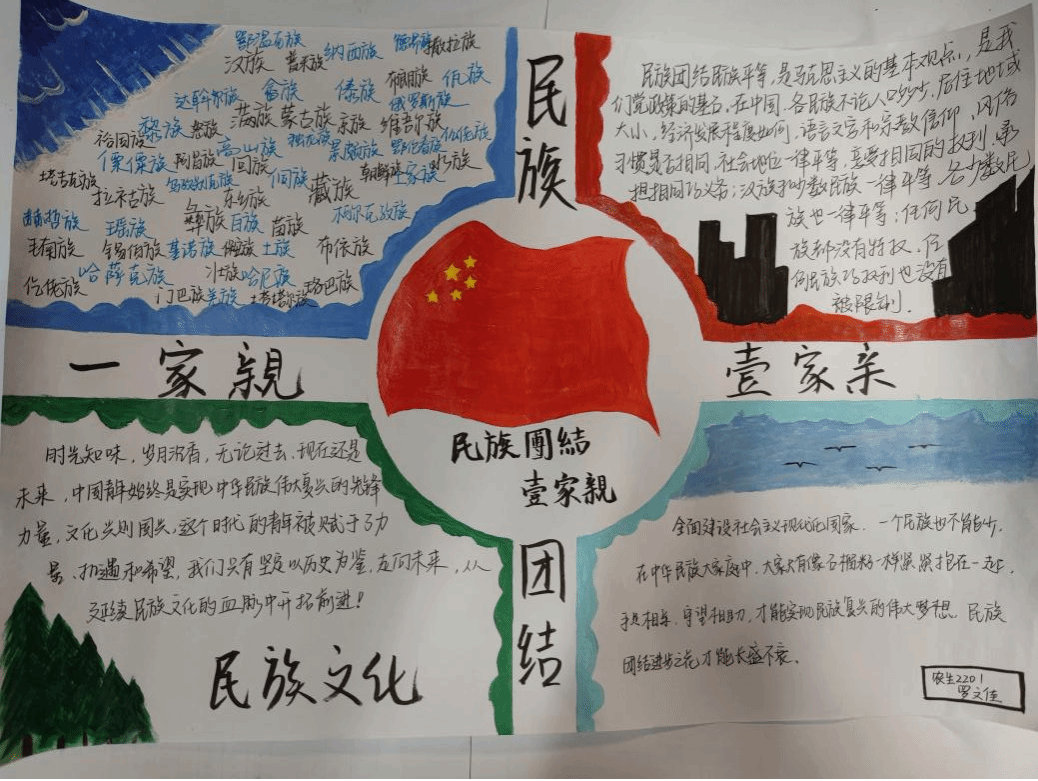 鄂温克族 纳西族 德昂族 撒拉族
汉族 高山族
达斡尔族 畲族 傣族 布朗族 佤族
俄罗斯族
裕固族 黎族 满族 蒙古族 京族 维吾尔族
傈僳族 阿昌族 回族 独龙族 景颇族 鄂伦春族
塔吉克族 拉祜族 东乡族 仫佬族 藏族 朝鲜族 土家族
赫哲族 瑶族 彝族 白族 苗族 柯尔克孜族
毛南族 锡伯族 基诺族 土族 布依族
仡佬族 哈萨克族 壮族 哈尼族 珞巴族
门巴族 羌族 塔塔尔族
民族
民族团结民族平等,是马克思主义的基本观点,是我
们党政策的基石。在中国,各民族不论人口多少,居住地域
大小,经济发展程度如何,语言文字和宗教信仰、风俗
习惯是否相同,社会地位一律平等,享受相同的权利、承
担相同的义务;汉族和少数民族一律平等、各少数民
族也一律平等;任何民
族都没有特权、任
何民族的权利也没有
被限制.
一家親
壹家亲
民族團結
壹家親
时光知味,岁月沉香,无论过去、现在还是
未来,中国青年始终是实现中华民族伟大复兴的先锋
力量,文化兴则国兴,这个时代的青年被赋于了力
量、机遇和希望,我们只有坚定以历史为鉴,走向未来,从
延续民族文化的血脉中开拓前进!
民族文化
团结
全面建设社会主义现代化国家,一个民族也不能少,
在中华民族大家庭中,大家只有像石榴籽一样紧紧抱在一起,
手足相亲、守望相助,才能实现民族复兴的伟大梦想。民族
团结进步之花才能长盛不衰。
农生2201
罗文佳